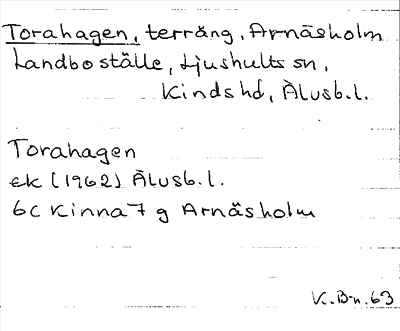 Torahagen, terräng, Arnäsholm
Landboställe, Ljushults sn,
Kinds hd, Älvsb.l.
Torahagen
ek (1962) Älvsb.l.
6C Kinna 7 g Arnäsholm
K.Bn.63